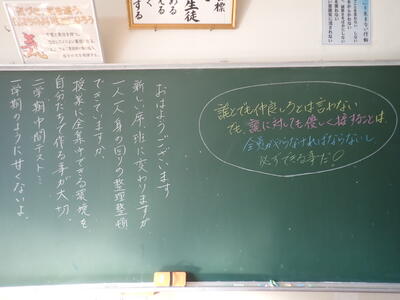 おはようございます
新しい席・班に変わりますが
一人一人身の回りの整理整頓
できていますか。
授業に集中できる環境を
自分たちで作る事が大切。
二学期中間テスト…
一学期のように甘くないよ。
誰とでも仲良くしろとは言わない
でも、誰に対しても優しく接することは
全員がやらなければならないし
必ずできる事だ!